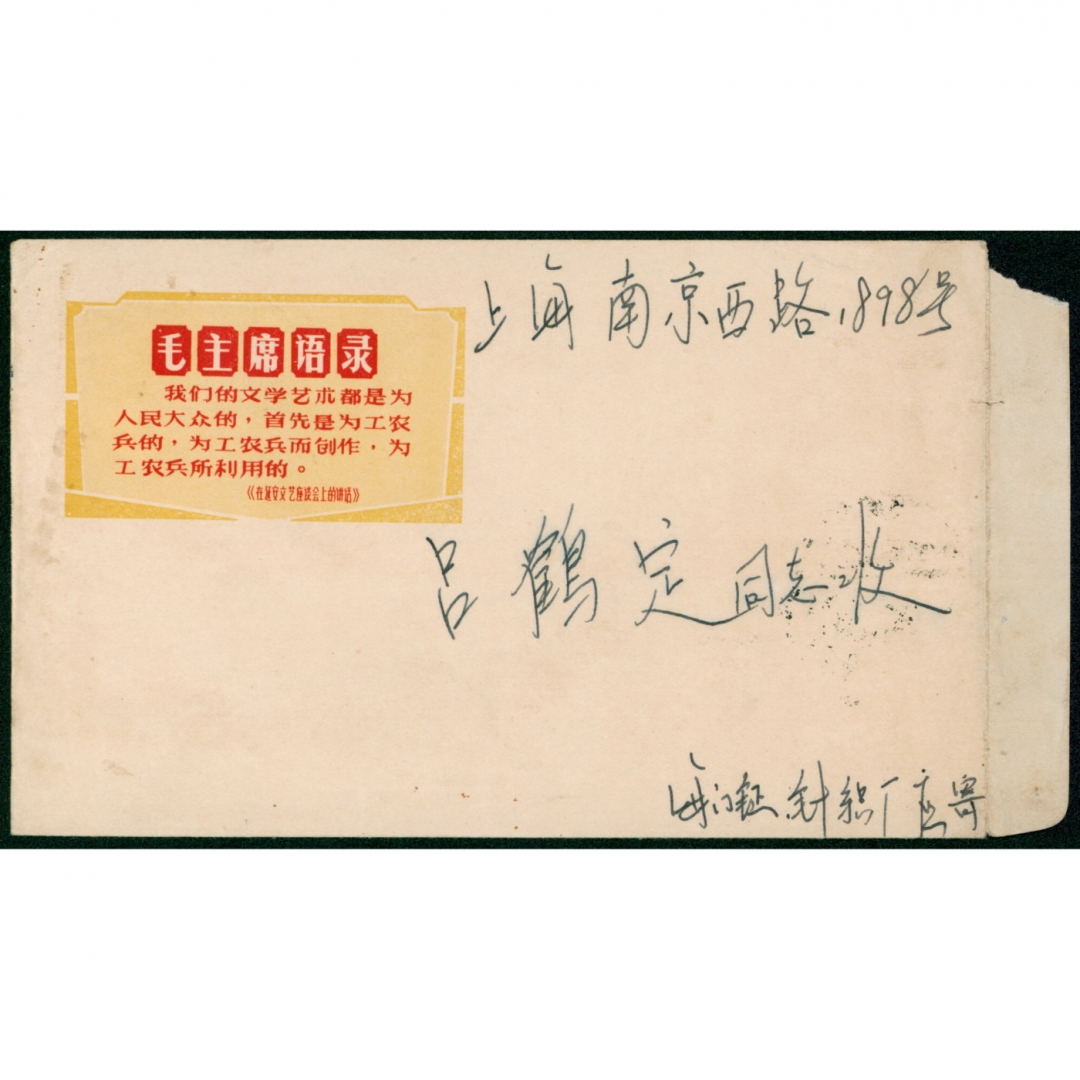 毛主席语录
我们的文学艺术都是为
人民大众的，首先是为工农
兵的，为工农兵而创作，为
工农兵所利用的。
《在延安文艺座谈会上的讲话》
上海南京西路1898号
吕鹤定同志收
海门 针织厂 寄